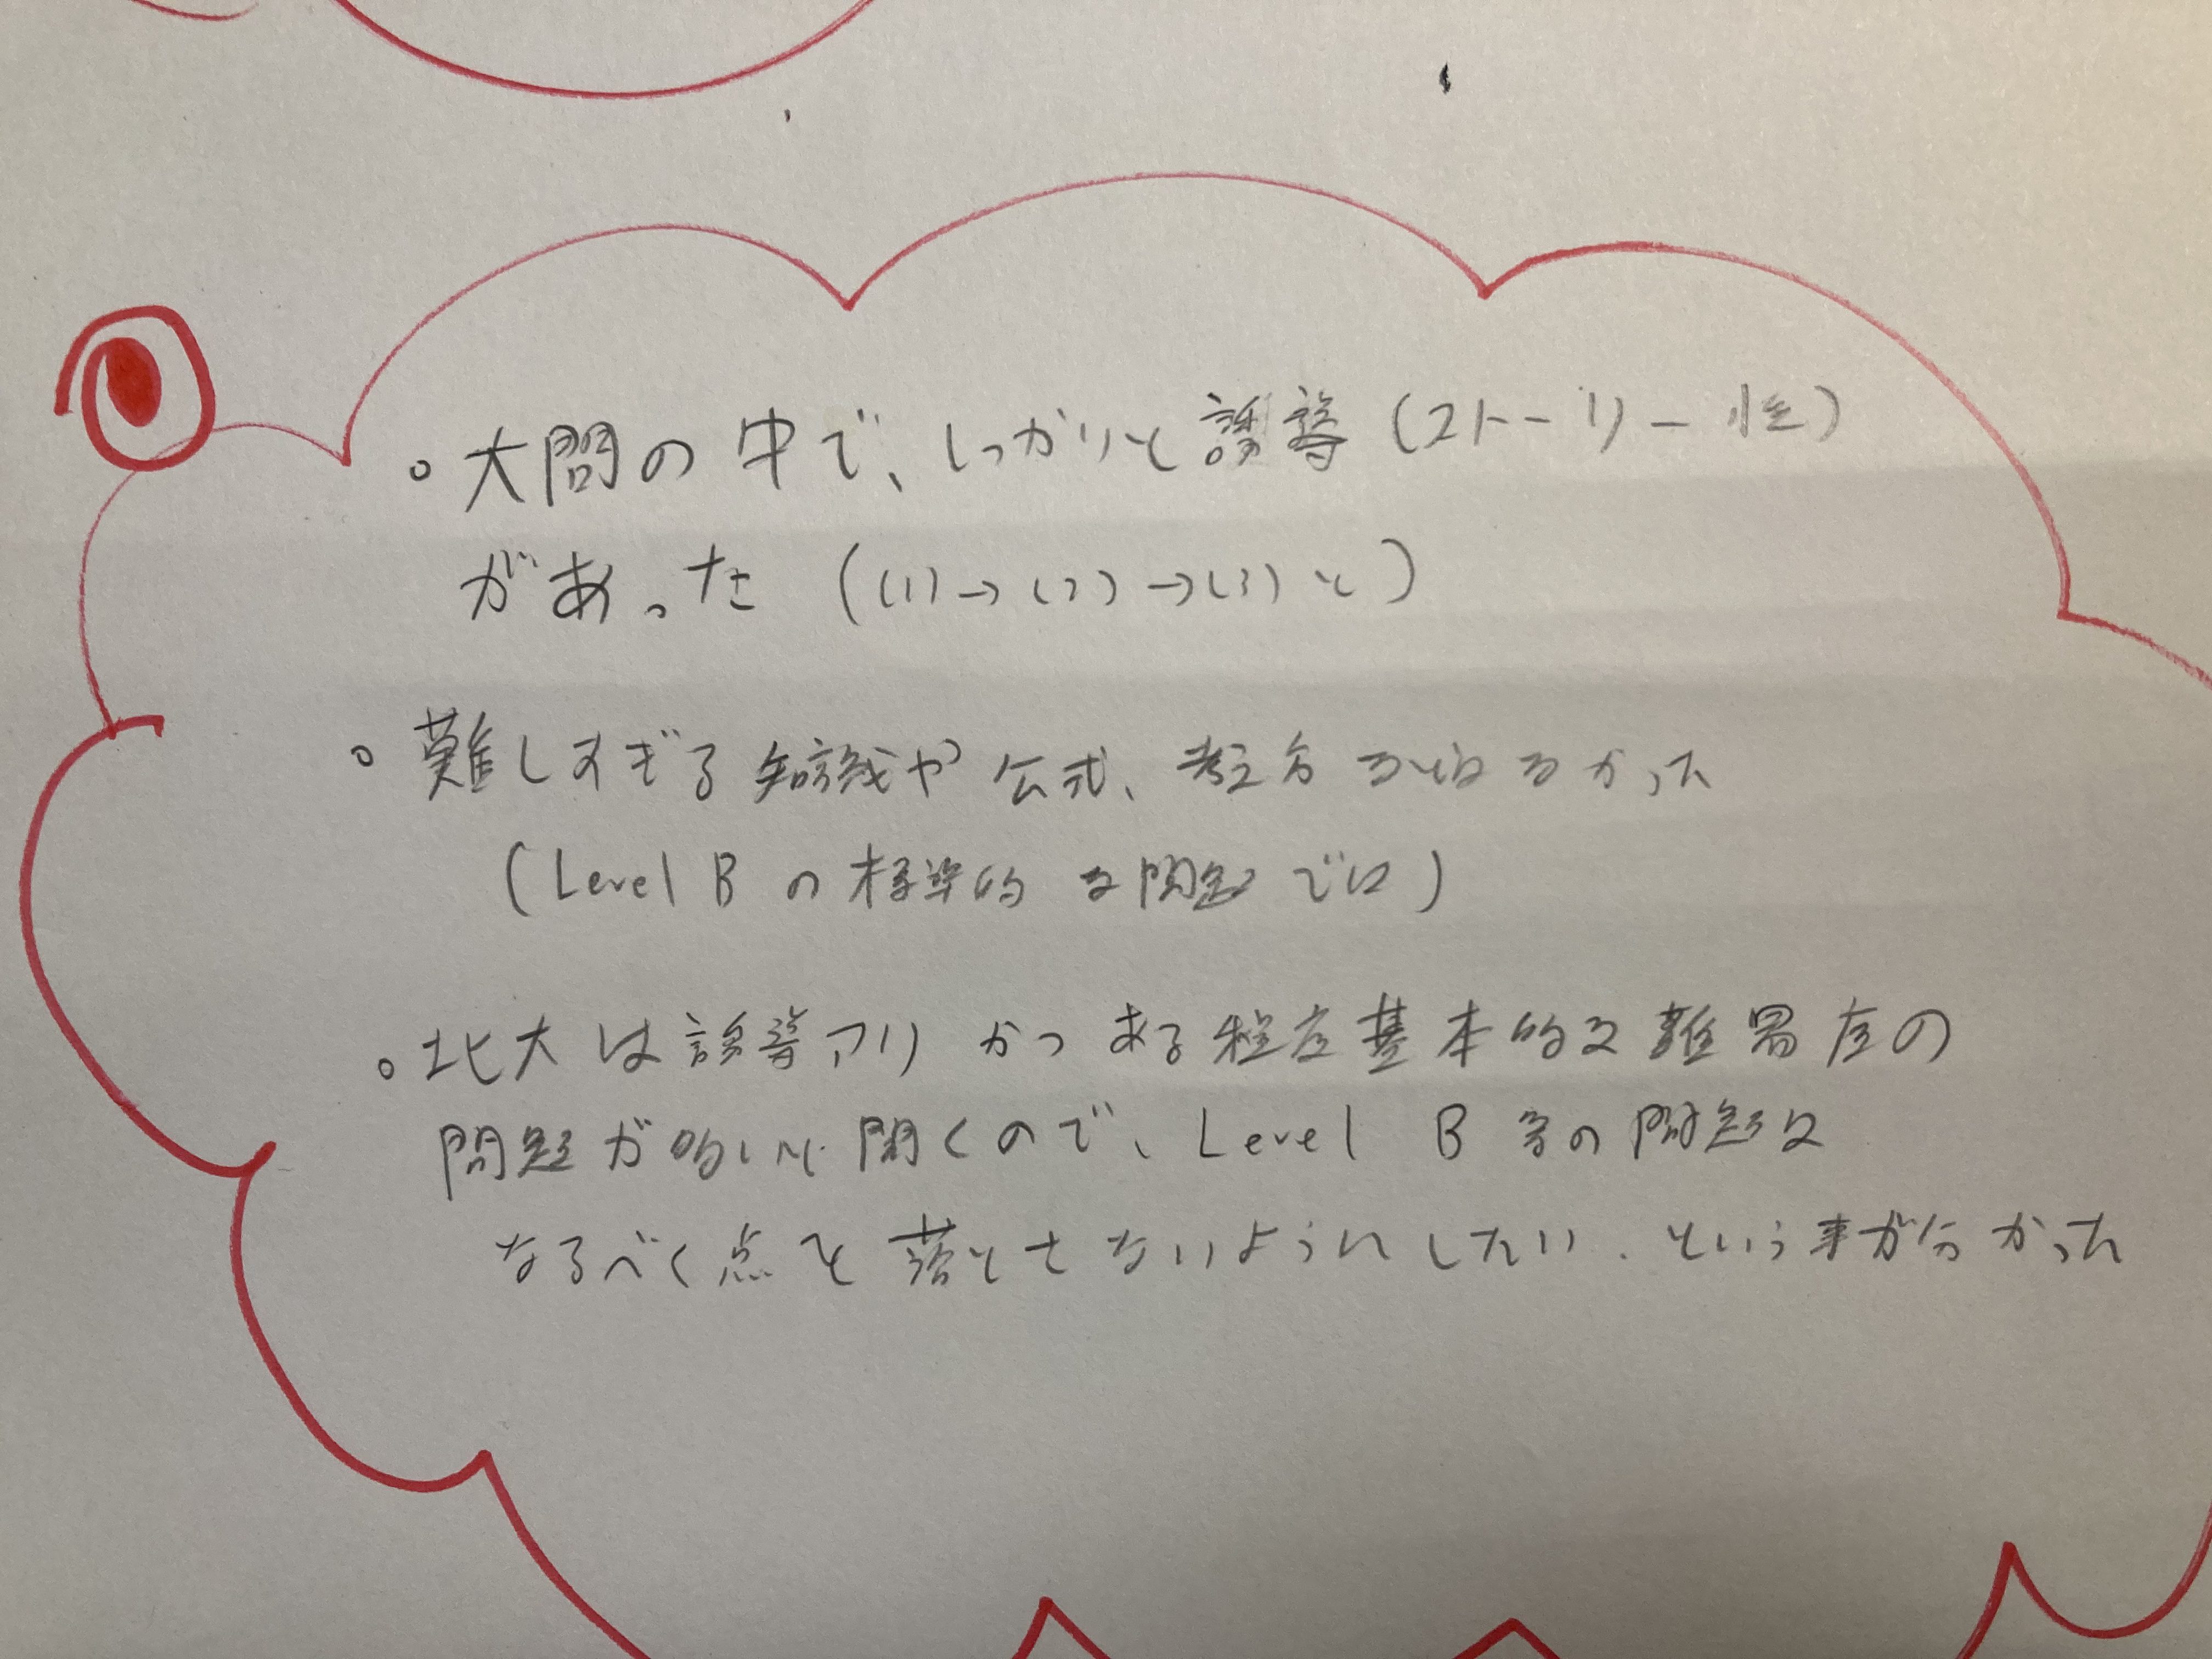 。大問の中で、しっかりと誘導(ストーリー性)
があった ((1)→(2)→(3)と)
。難しすぎる知識や公式、考え方ではなかった
(Level Bの標準的な問題では)
。北大は誘導アリかつある程度基本的な難易度の
問題が多いと聞くので、Level B 等の問題は
なるべく点を落とさないようにしたい、という事が分かった